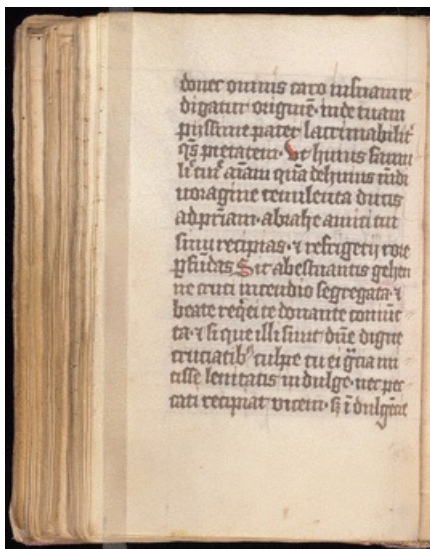 donec omnis caro in suam re
digatur originē· inde tuam
pijssime pater lacrimabilit᷑
q̄s pietatem· Vt huius famu
li tui aīam quā de huius mūdi
uoragine cenulenta ducis
ad pr̄iam· abrahe amici tui
sinu recipias· ⁊ refrigerij rore
ꝑfūdas Sit ab estuantis gehen
ne truci incendio segregata· ⁊
beate reqͥei te donante coniūc
ta· ⁊ si que illi sunt dn̄e digne
cruciatibꝰ culpe tu ei gͣcia mi
tisse lenitatis indulge· nec pec
cati recipiat vicem· sꝫ īdulgēcie